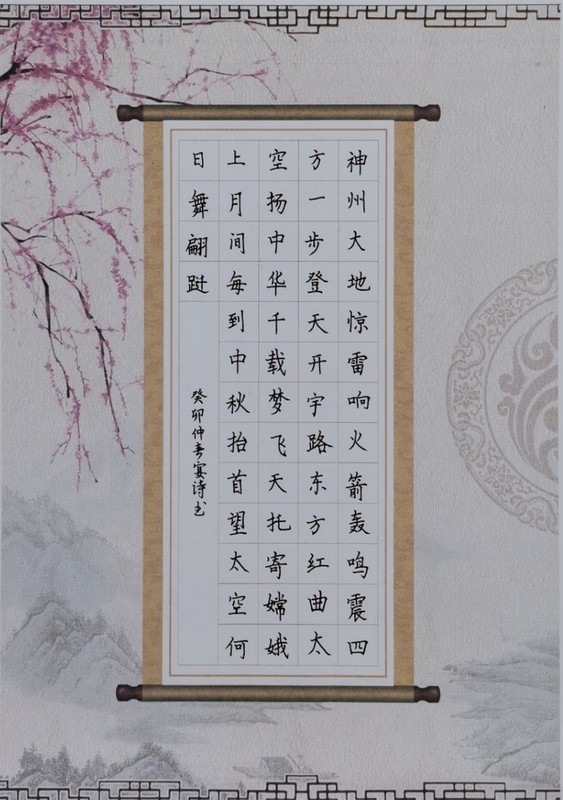 神州大地惊雷响火箭轰鸣震四
方一步登天开宇路东方红曲太
空扬中华千载梦飞天托寄嫦娥
上月间每到中秋抬首望太空何
日舞翩跹
癸卯仲春宴诗书